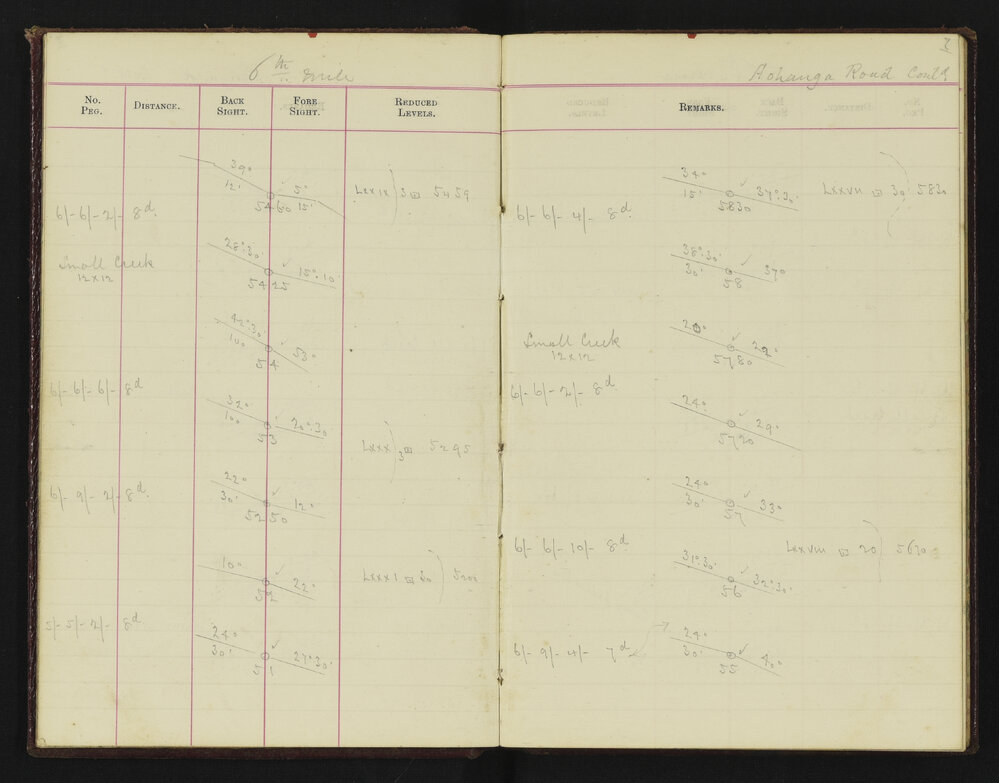 6th mile
No. Peg.
Distance.
Back Sight.
Fore Sight.
Reduced Levels.
39° 12' ✓ 5° 15'
5460
Lxxix) 3 ⊡ 5459
6/- 6/- 2/- 8d.
28°.30' ✓ 15°.10'
5425
Small Creek
12x12
42°.30' 100 ✓ 53°
54
6/- 6/- 6/- 8d
32° 100 ✓ 20°.30
53
Lxxx) 3 ⊡ 5295
6/- 9/- 2/- 8d.
22° 30' ✓ 12°
5250
10° ✓ 22°
52
Lxxx1 ⊡ 30)
5/- 5/- 2/- 8d
24° 30' ✓ 27°30'
51
Aohanga Road Contd
Remarks.
34° 15' ✓ 37°.30'
5830
Lxxvii ⊡ 30) 5830
6/- 6/- 4/- 8d.
38°.30' 30' ✓ 37°
58
20° ✓ 22°
5780
Small Creek
12x12
6/- 6/- 2/- 8d.
24° ✓ 29°
5720
24° 30 ✓ 33°
57
6/- 6/- 10/- 8d
Lxxviii ⊡ 20) 5670
31°.30' ✓ 32°.30'
56
6/- 9/- 4/- 7d
24° 30' ✓ 40°
55